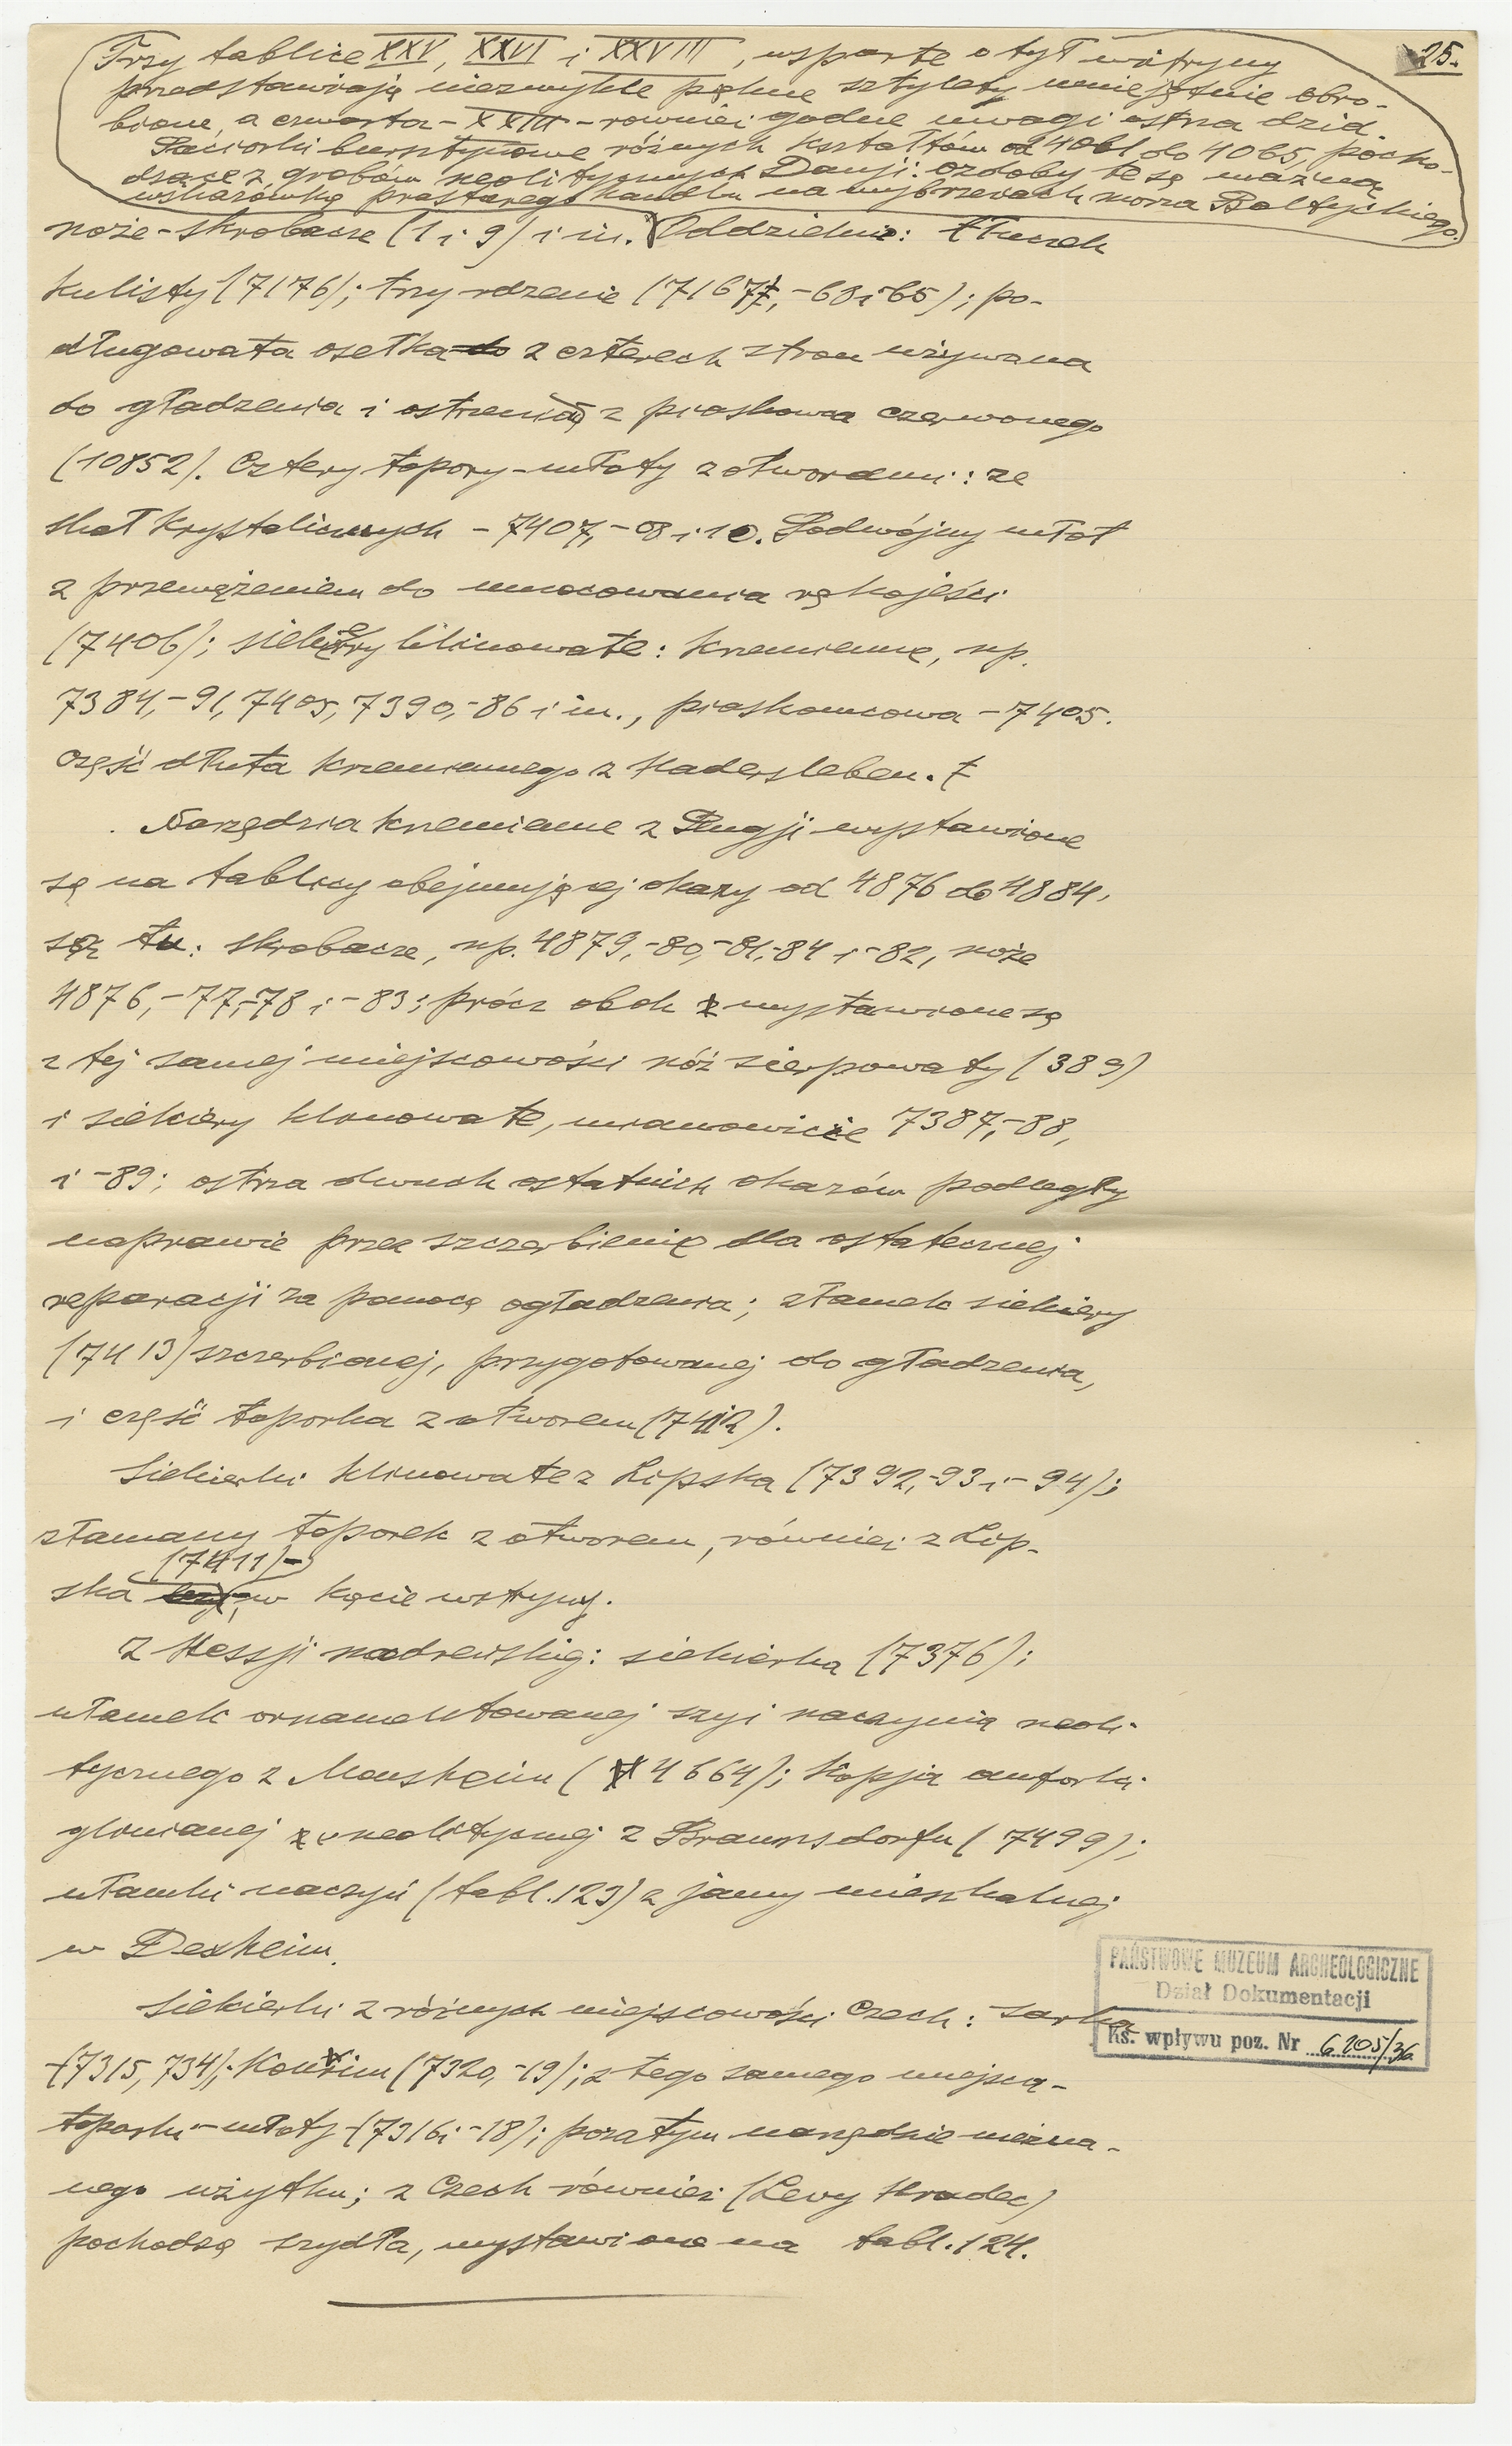 25.
Trzy tablice XXV, XXVI i XXVIII, wsparte o tył witryny
przedstawiają niezwykle piękne sztylety umiejętnie obro-
bione, a czwarta - XXIII - również godne uwagi ostrza dzid.
Paciorki bursztynowe różnych kształtów od 4061 do 4065, pocho-
dzące z grobów neolitycznych Danji: ozdoby te są ważną
wskazówką prastarego handlu na wybrzeżach morza Bałtyckiego.
noże-skrobacze (1 i 9) i in. Oddzielnie: tłuczek
kulisty (7176); trzy rdzenie (7167, -68 i 65); po-
długowata osełka z czterech stron używana
do gładzenia i ostrzenia z piaskowca czerwonego
(10852). Cztery topory-młoty z otworami: ze
skał krystalicznych - 7407, -08 i 10. Podwójny młot
z przewężeniem do umocowania rękojeści
(7406); siekiery klinowate: krzemienne, np.
7384, -91, 7405, 7390, -86 i in., piaskowcowa - 7405.
Część dłuta krzemiennego z Hadersleben.
Narzędzia krzemienne z Rugji wystawione
są na tablicy obejmującej okazy od 4876 do 4884,
są tu: skrobacze, np. 4879, -80, -81, -84 i -82, noże
4876, -77, -78 i -83; prócz obok wystawione są
z tej samej miejscowości nóż sierpowaty (389)
i siekiery klinowate, mianowicie 7387, -88,
i -89; ostrza dwuch ostatnich okazów podległy
naprawie przez szczerbienie dla ostatecznej
reparacji za pomocą ogładzenia; złamek siekiery
(7413) szczerbionej, przygotowanej do gładzenia,
i część toporka z otworem (7412).
Siekierki klinowate z Lipska (7392, -93 i -94);
złamany toporek z otworem, również z Lip-
(7411)-
ska w kącie witryny.
Z Hessji nadreńskiej: siekierka (7376);
ułamek ornamentowanej szyi naczynia neoli-
tycznego z Monsheim (4664); kopja amforki
glinianej neolitycznej z Braunsdorfu (7499);
ułamki naczyń (tabl. 123) z jamy mieszkalnej
w Dexheim.
Siekierki z różnych miejscowości Czech: Sarka
(7315, 734); Kouřim (7320, -19); z tego samego miejsca -
toporki-młoty (7316 i -18); pozatym narzędzie niezna-
nego użytku; z Czech również (Levy Hradec)
pochodzą szydła, wystawione na tabl. 124.
PAŃSTWOWE MUZEUM ARCHEOLOGICZNE
Dział Dokumentacji
Ks. wpływu poz. Nr 6205/36